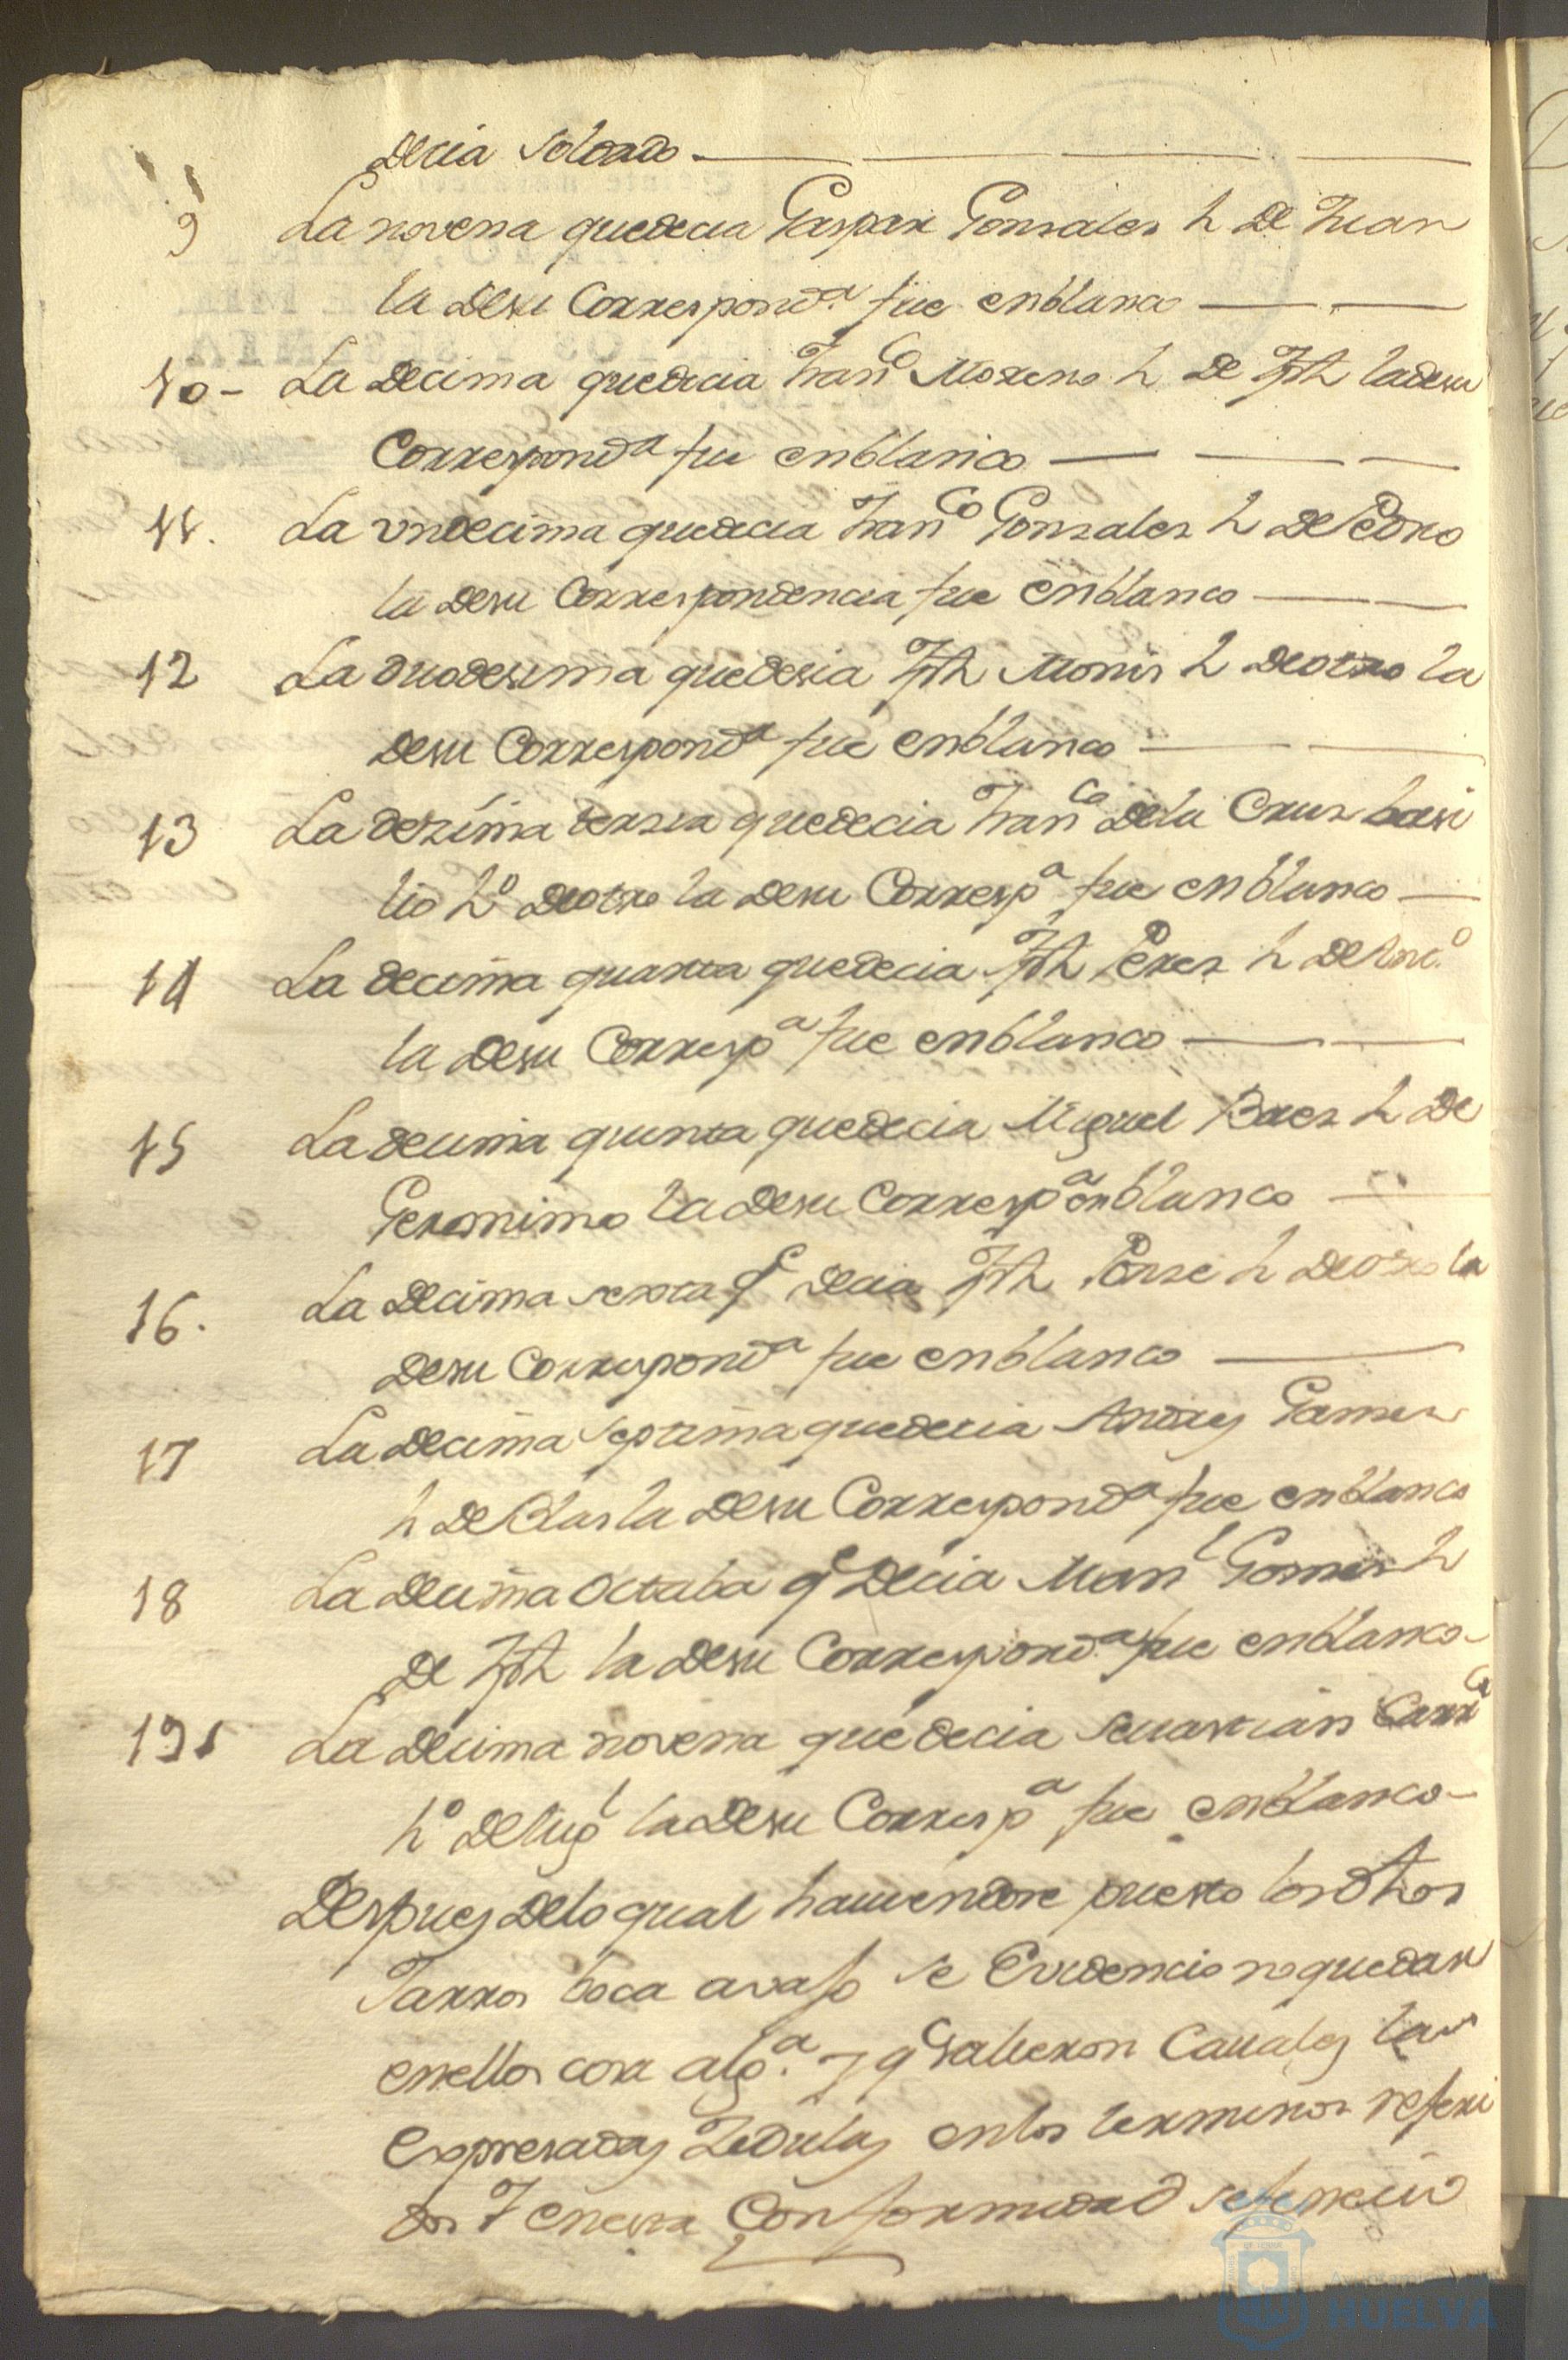 decia soldado
9 La novena quedecia Gaspar Gonsales h de Juan
la desu Correspond.ª fue enblanco
10- La decima quedecia Franco Moreno h de Jph ladesu
Correspondª fue enblanco
11. La undecima quedecia Franco Gonsales h de Pedro
la desu Correspondencia fue enblanco
12 La duodesima quedesia Jph Monis h deotro la
desu Correspondª fue enblanco
13 La dezima tersera quedecia Franco dela Cruz basi
lio hº deotro la desu Correspª fue enblanco
14 La decima quarta quedecia Jph Peres h de
la desu Correspª fue enblanco
15 La decima quinta quedecia Miguel Baes h de
Geronimo la desu Correspª enblanco
16. La decima sexta qe decia Jph Ponse h deotro la
desu Correspondª fue enblanco
17 La decima septima quedecia Andres
h de Blas la desu Correspondª fue enblanco
18 La decima octaba qe decia Manl Gomes h
de Jph la desu Correspondª fue enblanco
19 La decima novena quedecia Seuastian
hº de la desu Correspª fue enblanco
Despues delo qual hauiendose puesto los dhos
Jarros boca avajo se Evidencio no quedar
enellos cosa algª. y qe salieron Cauales las
expresadas Zedulas enlos terminos referi
dos Y enesta Conformidad sefenecio
HUELVA